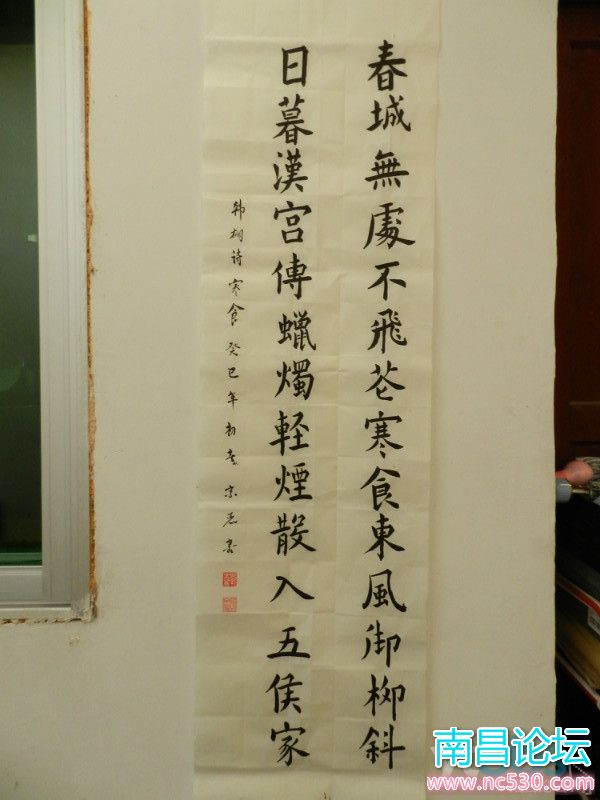 春城無處不飛花寒食東風御柳斜
日暮漢宮傳蠟燭軽煙散入五侯家
韩翃诗寒食癸巳年初春宗 书
南昌论坛
www.nc530.com